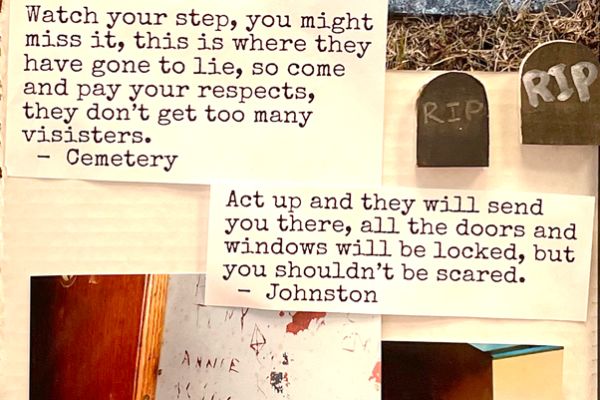 Watch your step, you might
miss it, this is where they
have gone to lie, so come
and pay your respects,
they don't get too many
visisters.
- Cemetery
RIP
RIP
Act up and they will send
you there, all the doors and
windows will be locked, but
you shouldn't be scared.
- Johnston
ANNIE